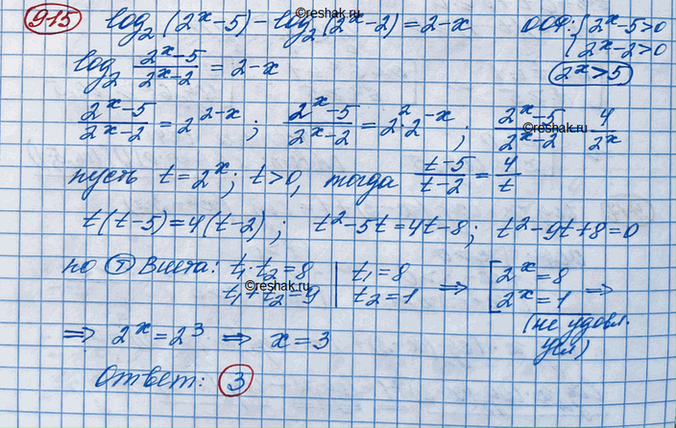 915 log₂(2ˣ-5)-log₂(2ˣ-2)=2-x ООФ: {2ˣ-5>0
©reshak.ru
{2ˣ-2>0
log₂ (2ˣ-5)/(2ˣ-2) = 2-x 2ˣ>5
(2ˣ-5)/(2ˣ-2) = 2²⁻ˣ; (2ˣ-5)/(2ˣ-2) = 2²·2⁻ˣ; (2ˣ-5)/(2ˣ-2) 4/2ˣ
©reshak.ru
пусть t=2ˣ; t>0, тогда (t-5)/(t-2) = 4/t
t(t-5)=4(t-2); t²-5t=4t-8; t²-9t+8=0
по Ⓣ Виета: t₁·t₂=8 | t₁=8 ⇒ [2ˣ=8
©reshak.ru
t₁+t₂=9 | t₂=1 [2ˣ=1 ⇒
(не удовл.
усл)
⇒ 2ˣ=2³ ⇒ x=3
Ответ: 3